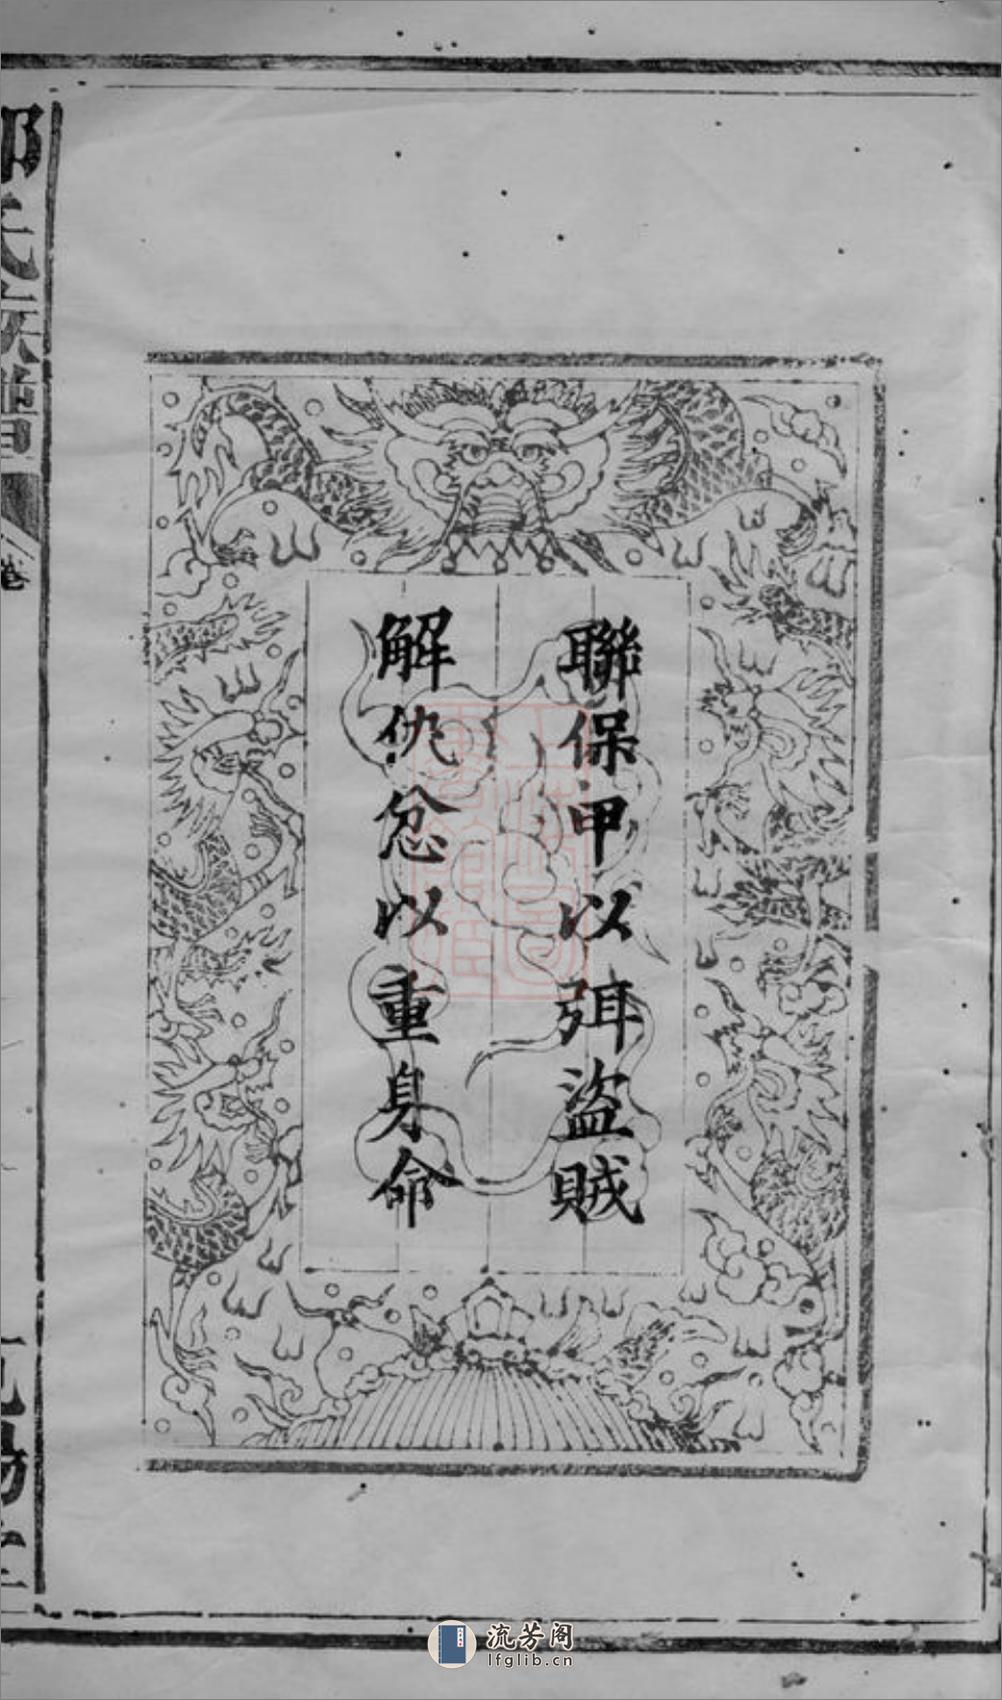 聯保甲以弭盜賊
解仇忿以重身命
氏族譜
卷
流芳阁
lfglib.cn